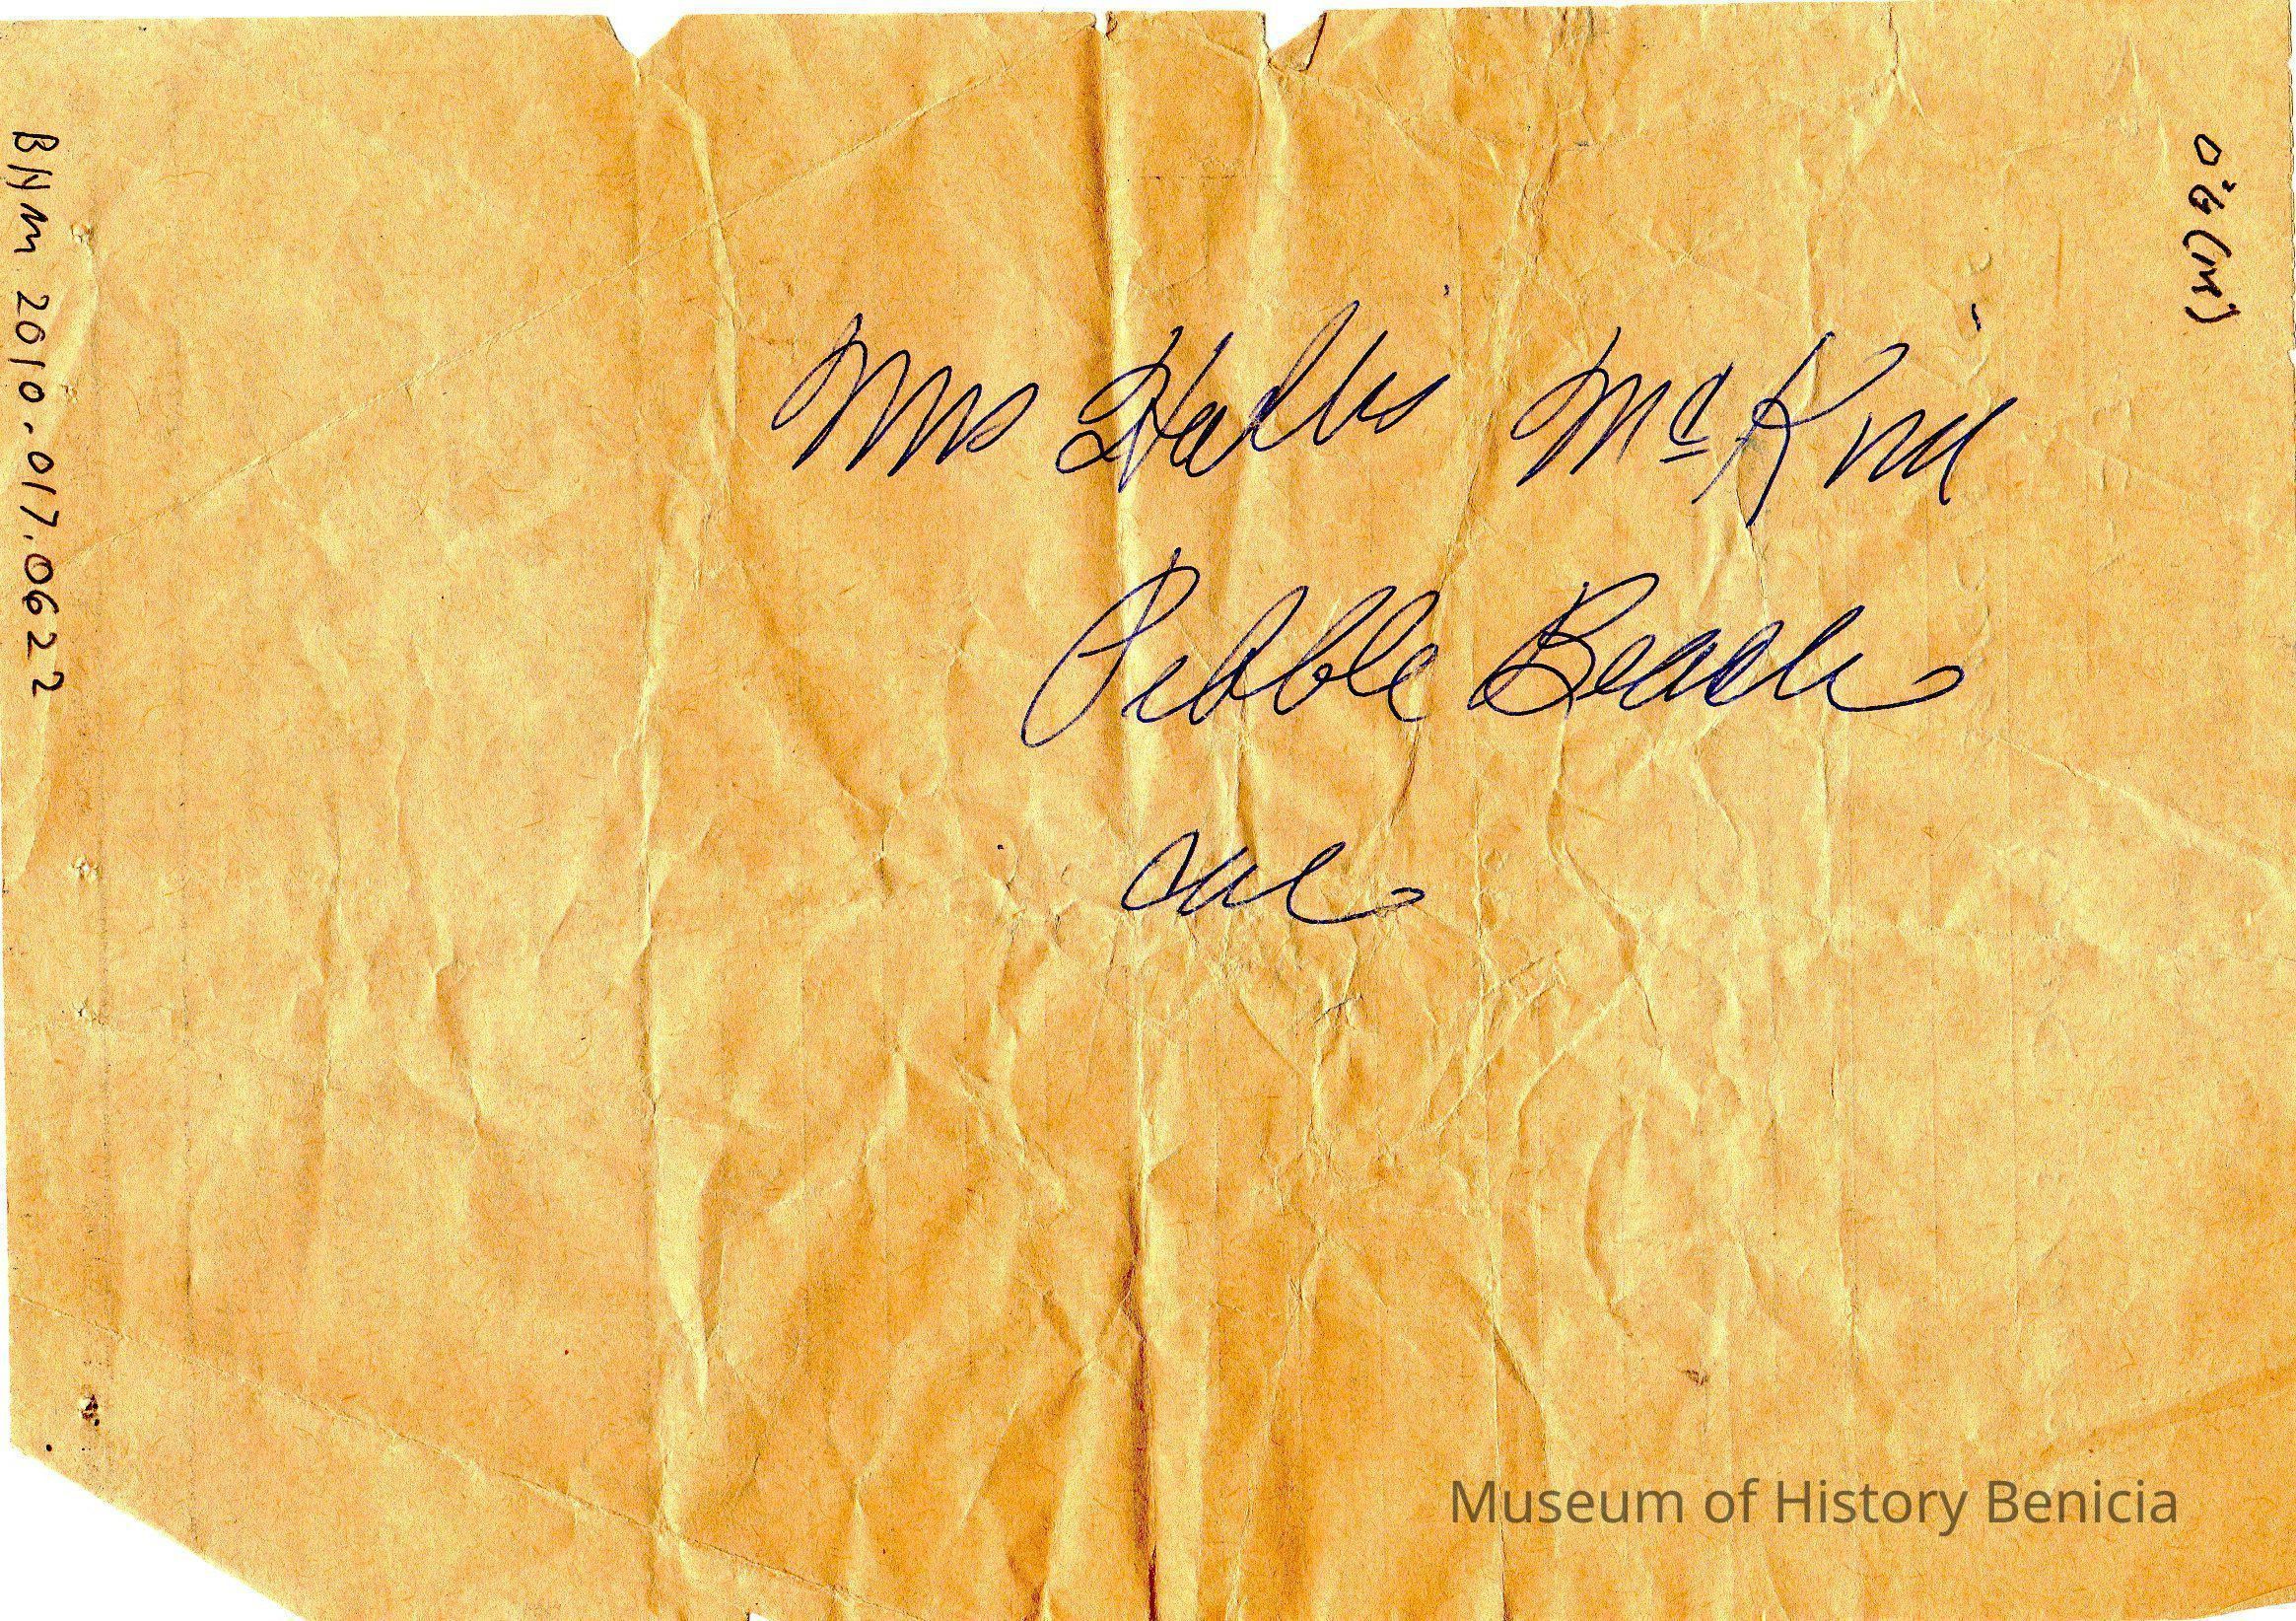 BHM 2010.017.0622
Mrs Hallis
Pebble Beach
Cal
Museum of History Benicia